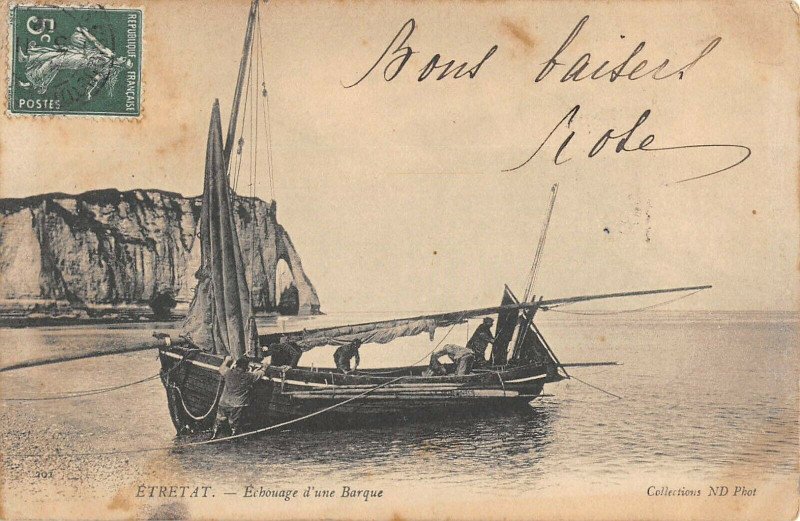 5c
RÉPUBLIQUE FRANÇAISE
POSTES
Bons baisers
Rose
101
ÉTRETAT. — Échouage d'une Barque
Collections ND Phot